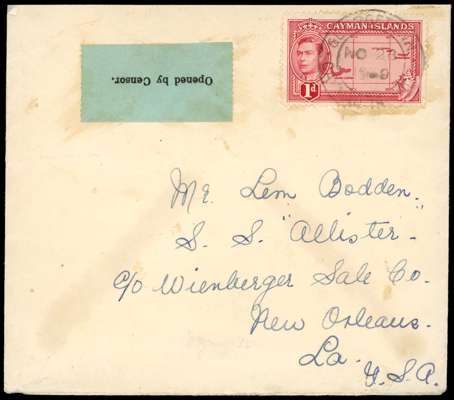 CAYMAN ISLANDS
1d
Opened by Censor.
Mr. Lem Bodden.
S. S. "Allister"
c/o Wienberger Sale Co.
New Orleans.
La.
U.S.A.